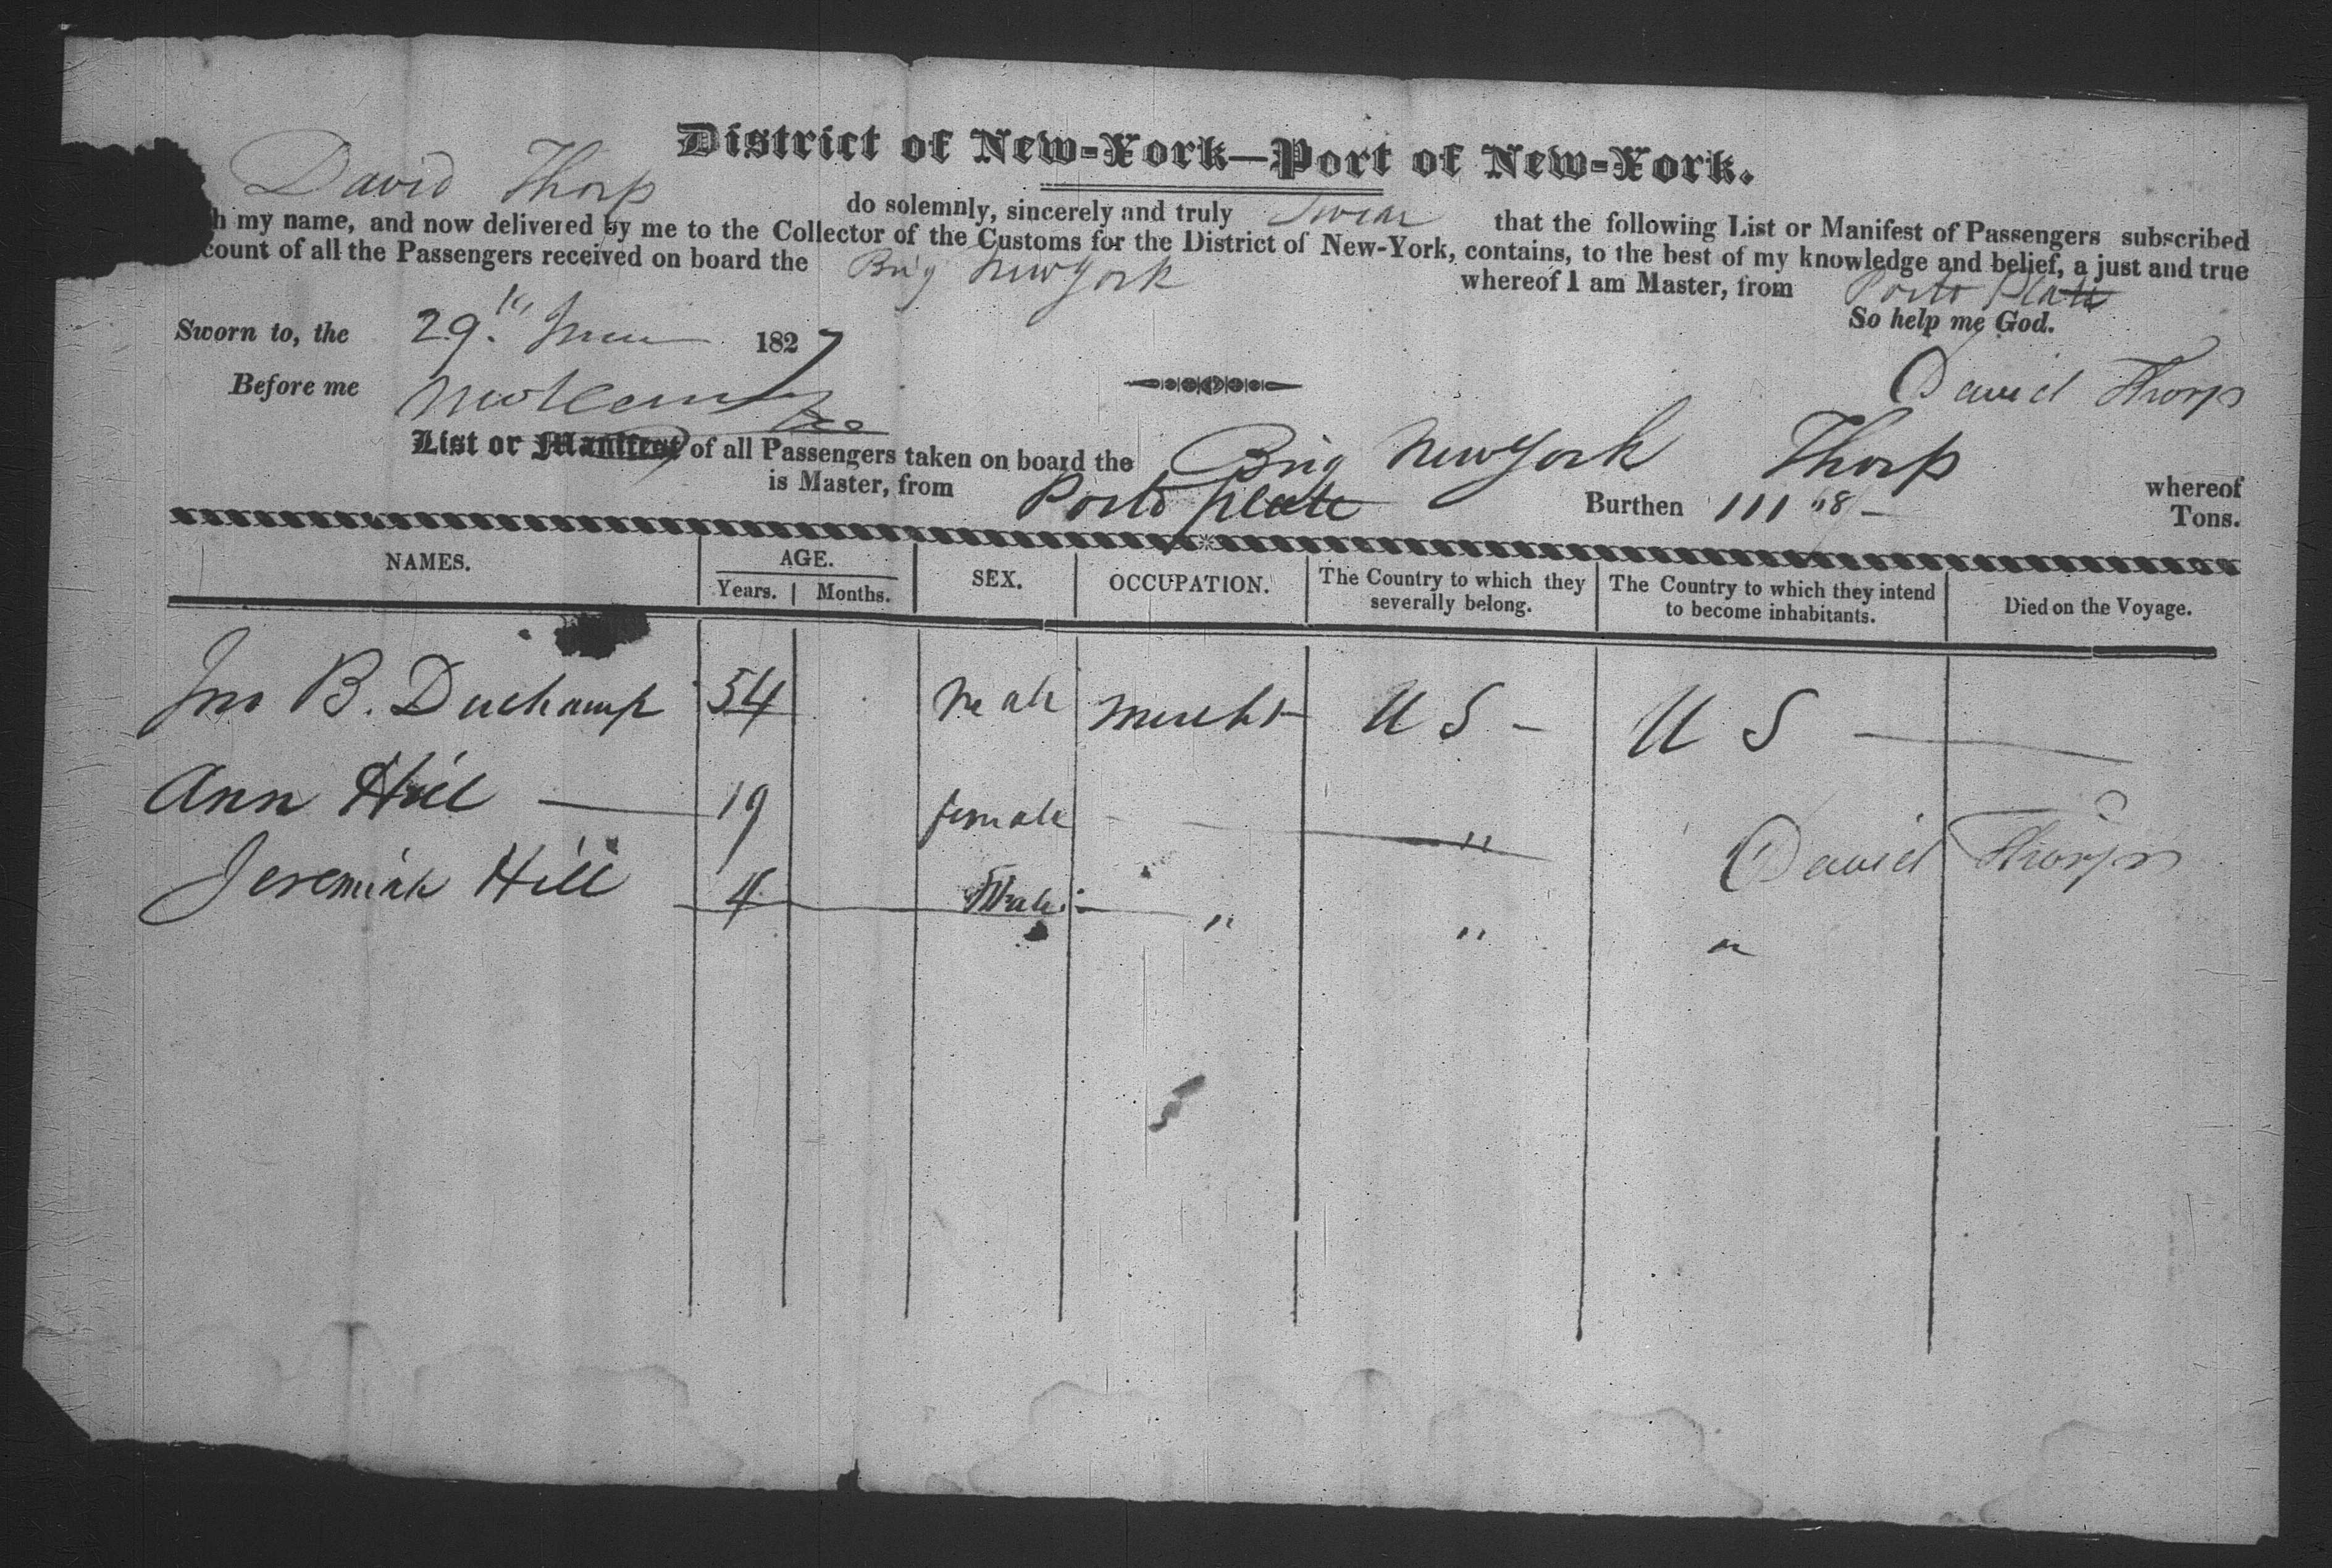 District of New-York—Port of New-York.
David Thorp do solemnly, sincerely and truly Swear that the following List or Manifest of Passengers subscribed
h my name, and now delivered by me to the Collector of the Customs for the District of New-York, contains, to the best of my knowledge and belief, a just and true
count of all the Passengers received on board the Brig New York whereof I am Master, from Porto Plate
So help me God.
Sworn to, the 29th June 1827
Before me
David Thorp
List or Manifest of all Passengers taken on board the Brig New York Thorp whereof
is Master, from Porto Plate Burthen 111 68 Tons.
NAMES. AGE. SEX. OCCUPATION. The Country to which they severally belong. The Country to which they intend to become inhabitants. Died on the Voyage.
Years. Months.
Jno B. Duchamp 54 Male Mercht U S - U S
Ann Hill 19 female "
David Thorp
Jeremiah Hill 4 Male " " "